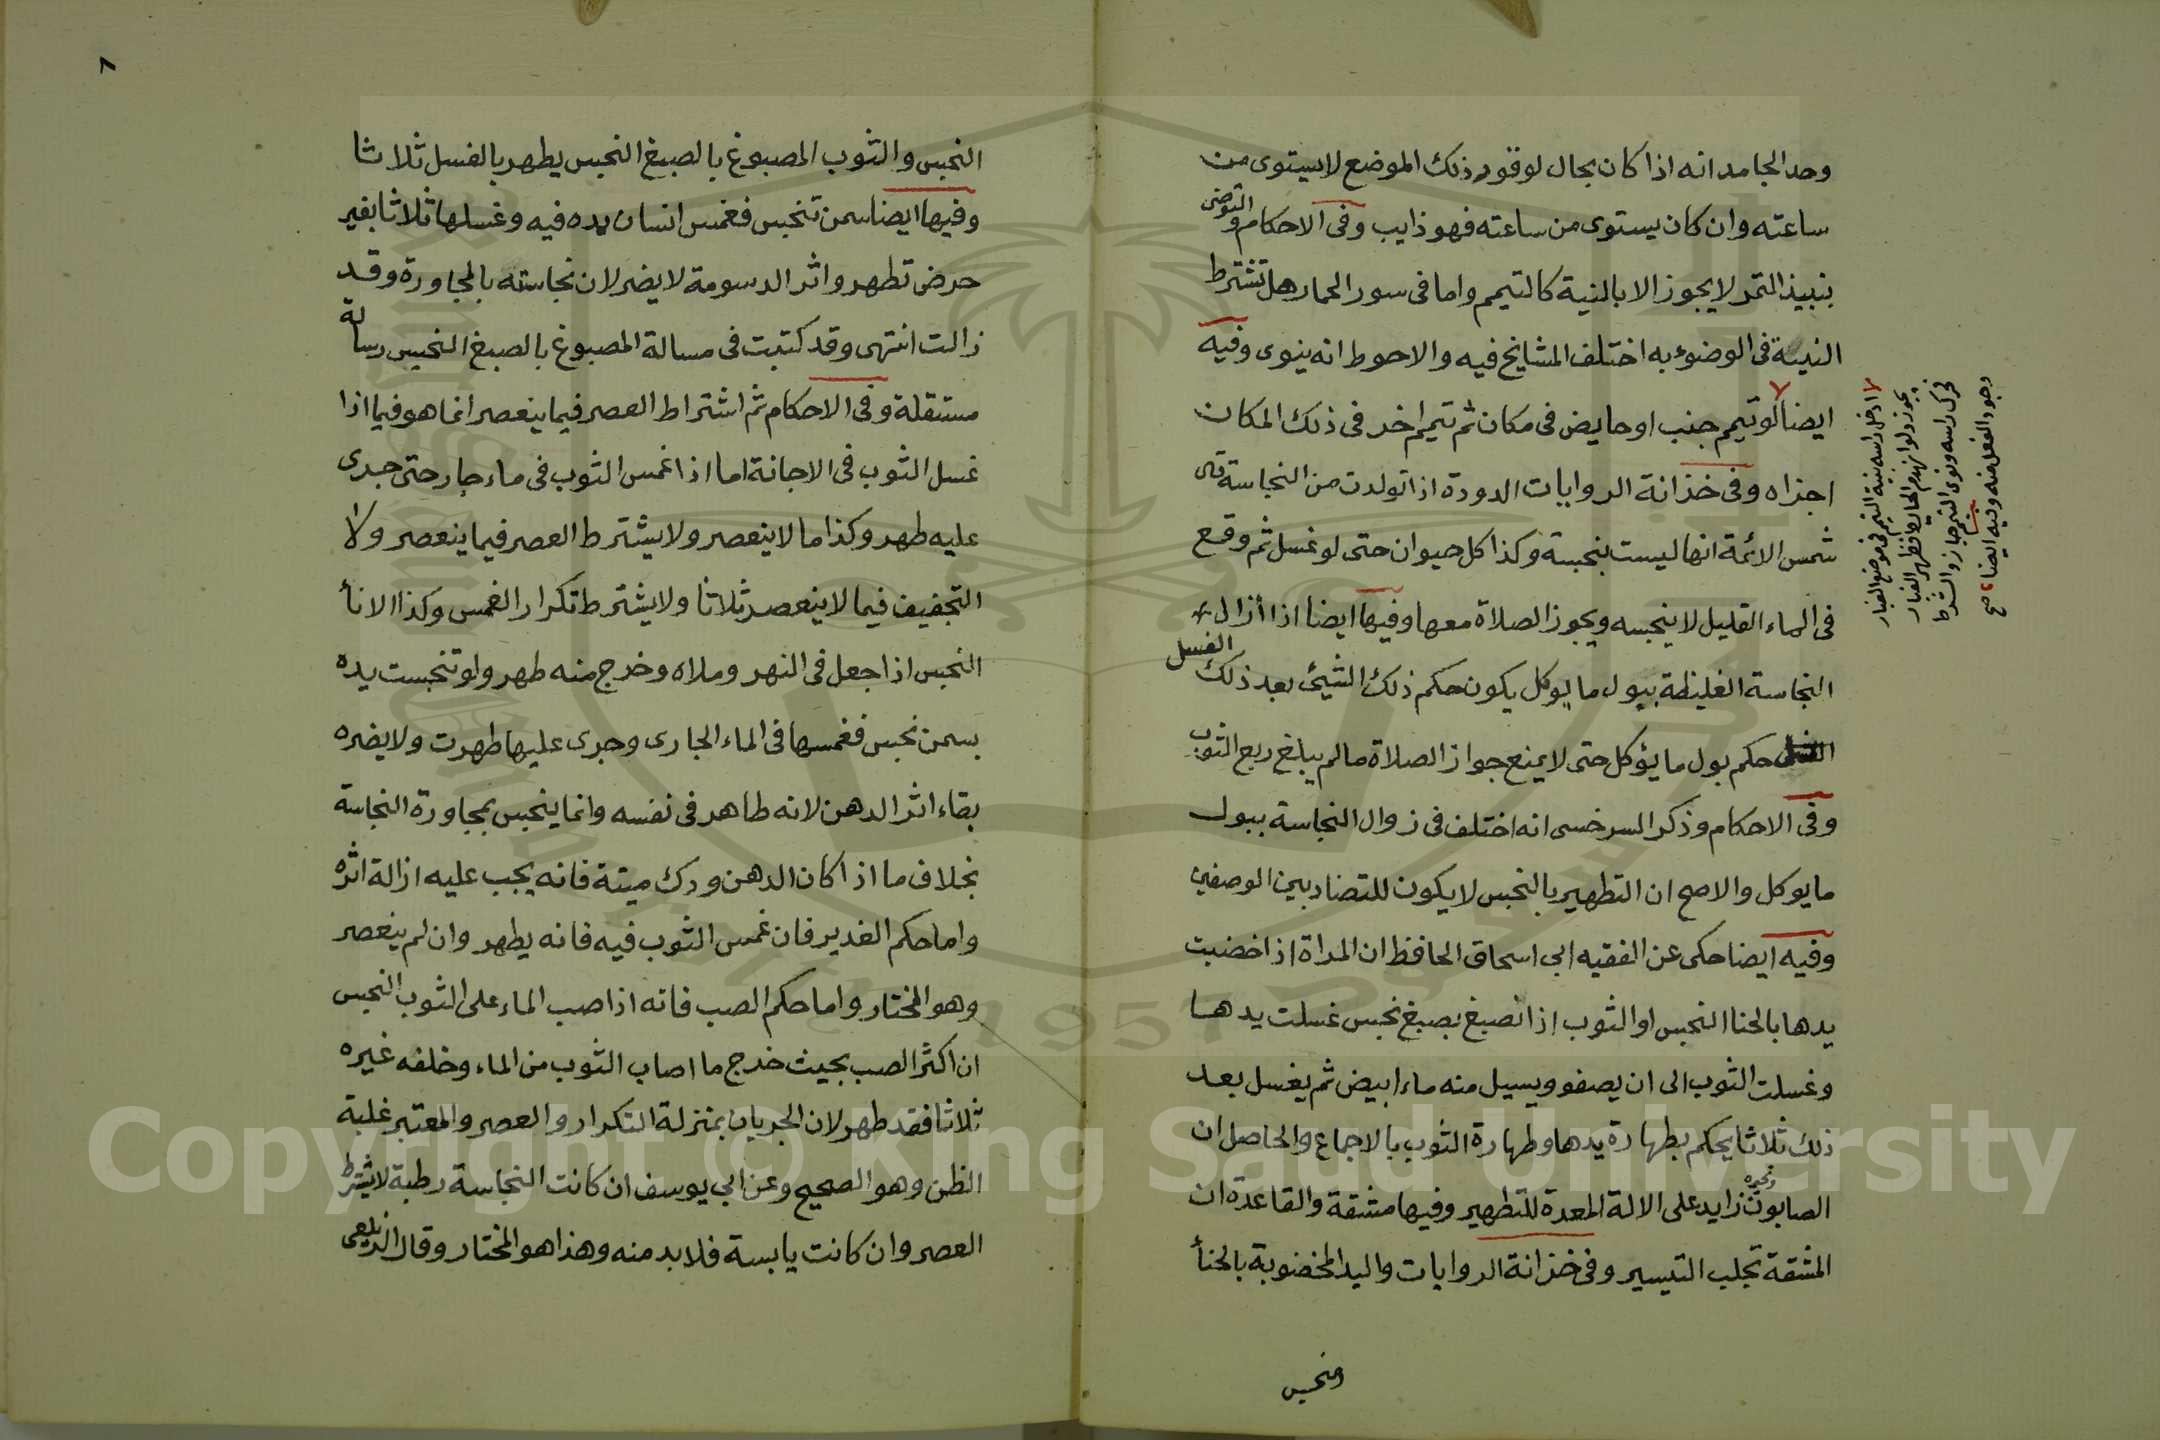 وحد الجامد انه اذا كان بحال لو قور ذلك الموضع لا يستوى من
ساعته وان كان يستوى من ساعته فهو ذايب وفى الاحكام والتوضى
بنبيذ التمر لا يجوز الا بالنية كالتيمم واما فى سور الحمار هل تشترط
النية فى الوضوء به اختلف المشايخ فيه والاحوط انه ينوى وفيه
ايضا لو تيمم جنب او حايض فى مكان ثم تيمم اخر فى ذلك المكان
اجزاه وفى خزانة الروايات الدودة اذا تولدت من النجاسة قال
شمس الائمة انها ليست بنجسة وكذا كل حيوان حتى لو غسل ثم وقع
فى الماء القليل لا ينجسه ويجوز الصلاة معها وفيها ايضا اذا أزال
النجاسة الغليظة ببول ما يوكل يكون حكم ذلك الشيئ بعد ذلك الغسل
حكم بول ما يؤكل حتى لا يمنع جواز الصلاة ما لم يبلغ ربع الثوب
وفى الاحكام وذكر السرخسى انه اختلف فى زوال النجاسة ببول
ما يوكل والاصح ان التطهير بالنجس لا يكون للتضاد بين الوصفين
وفيه ايضا حكى عن الفقيه ابى اسحاق الحافظ ان المراة اذا خضبت
يدها بالحنا النجس او الثوب اذا انصبغ بصبغ نجس غسلت يدها
وغسلت الثوب الى ان يصفو ويسيل منه ماء ابيض ثم يغسل بعد
ذلك ثلاثا يحكم بطهارة يدها وطهارة الثوب بالاجماع والحاصل ان
الصابون ونحوه زايد على الالة المعدة للتطهير وفيها مشقة والقاعدة ان
المشقة تجلب التيسير وفى خزانة الروايات واليد المخضوبة بالحنأ
النجس
لا ادخل راسه بنية التيمم فى موضع الغبار
يجوز ولو انهدم الحايط فظهر الغبار
فحرك راسه ونوى التيمم جاز والشرط
وجود الفعل منه وفيه ايضا صح
٨
النجس والثوب المصبوغ بالصبغ النجس يطهر بالغسل ثلاثا
وفيها ايضا سمن تنجس فغمس انسان يده فيه وغسلها ثلاثا بغير
حرض تطهر واثر الدسومة لا يضر لان نجاسته بالمجاورة وقد
زالت انتهى وقد كتبت فى مسالة المصبوغ بالصبغ النجس رسالة
مستقلة وفى الاحكام ثم اشتراط العصر فيما ينعصر انما هو فيما اذا
غسل الثوب فى الاجانة اما اذا غمس الثوب فى ماء جار حتى جرى
عليه طهر وكذا ما لا ينعصر ولا يشترط العصر فيما ينعصر ولا
التجفيف فيما لا ينعصر ثلاثا ولا يشترط تكرار الغمس وكذا الانأ
النجس اذا جعل فى النهر وملاه وخرج منه طهر ولو تنجست يده
بسمن نجس فغمسها فى الماء الجارى وجرى عليها طهرت ولا يضره
بقاء اثر الدهن لانه طاهر فى نفسه وانما ينجس بمجاورة النجاسة
بخلاف ما اذا كان الدهن ودك ميتة فانه يجب عليه ازالة اثره
واما حكم الغدير فان غمس الثوب فيه فانه يطهر وان لم ينعصر
وهو المختار واما حكم الصب فانه اذا صب الماء على الثوب النجس
ان اكثر الصب بحيث خرج ما اصاب الثوب من الماء وخلفه غيره
ثلاثا فقد طهر لان الجريان بمنزلة التكرار والعصر والمعتبر غلبة
الظن وهو الصحيح وعن ابى يوسف ان كانت النجاسة رطبة لا يشترط
العصر وان كانت يابسة فلا بد منه وهذا هو المختار وقال الزيلعى
Copyright © King Saud University
1957